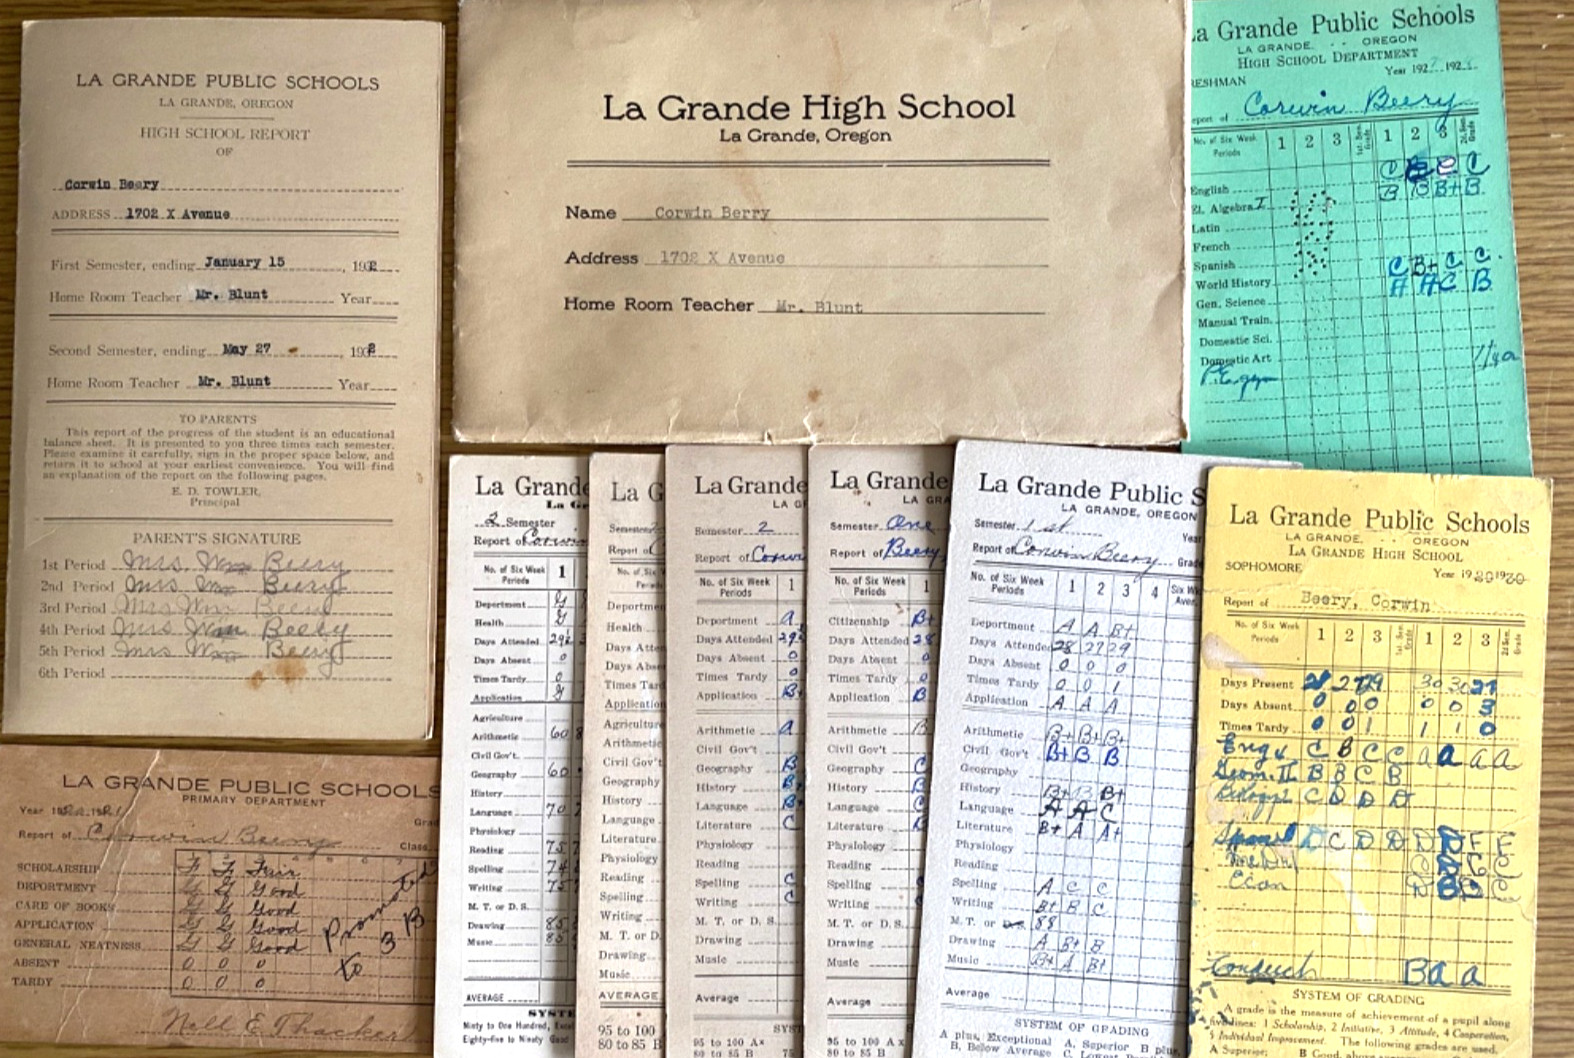 LA GRANDE PUBLIC SCHOOLS
LA GRANDE, OREGON
HIGH SCHOOL REPORT
OF
Corwin Beery
ADDRESS 1702 X Avenue
First Semester, ending January 15, 1932
Home Room Teacher Mr. Blunt Year
Second Semester, ending May 27, 1932
Home Room Teacher Mr. Blunt Year
TO PARENTS
This report of the progress of the student is an educational
balance sheet. It is presented to you three times each semester.
Please examine it carefully, sign in the proper space below, and
return it to school at your earliest convenience. You will find
an explanation of the report on the following pages.
E. D. TOWLER,
Principal
PARENT'S SIGNATURE
1st Period Mrs. Wm Beery
2nd Period Mrs. Wm Beery
3rd Period Mrs Wm Beery
4th Period Mrs Wm Beery
5th Period Mrs Wm Beery
6th Period
La Grande High School
La Grande, Oregon
Name Corwin Berry
Address 1702 X Avenue
Home Room Teacher Mr. Blunt
La Grande Public Schools
LA GRANDE, OREGON
HIGH SCHOOL DEPARTMENT
ESHMAN Year 192
eport of Corwin Beery
No. of Six Week Periods 1 2 3 1st Sem. Grade 1 2 3 2d Sem. Grade
English
El. Algebra I B B B+ B
Latin
French
Spanish
World History C B+ C C
Gen. Science
Manual Train.
Domestic Sci.
Domestic Art
LA GRANDE PUBLIC SCHOOLS
PRIMARY DEPARTMENT
Year
Report of Corwin Beery
SCHOLARSHIP F F Fair
DEPORTMENT G G Good
CARE OF BOOKS G G Good
APPLICATION G G Good
GENERAL NEATNESS G G Good
ABSENT 0 0 0
TARDY 0 0 0
Promoted
to 3 B
Nell E Thacker
La Grande
2 Semester
Report of Corwin
No. of Six Week Periods 1
Department G
Health G
Days Attended
Days Absent 0
Times Tardy 0
Application G
Agriculture
Arithmetic 60
Civil Gov't.
Geography 60
History
Language 70
Physiology
Reading 75
Spelling 74
Writing 75
M. T. or D. S.
Drawing 85
Music 85
AVERAGE
SYSTE
Ninty to One Hundred, Excel
Eighty-five to Ninety Good
La G
Semester
Report of C
No. of Six
Departmen
Health
Days Atte
Days Abse
Times Tard
Application
Agriculture
Arithmetic
Civil Gov't
Geography
History
Language
Literature
Physiology
Reading
Spelling
Writing
M. T. or D.
Drawing
Music
AVERAGE
95 to 100
80 to 85 B
La Grande
LA G
Semester 2
Report of Corwi
No. of Six Week Periods 1
Department a
Days Attended
Days Absent 0
Times Tardy 0
Application B+
Arithmetic a
Civil Gov't.
Geography B
History B+
Language B+
Literature C
Physiology
Reading
Spelling C
Writing C
M. T. or D. S.
Drawing
Music
Average
SYST
95 to 100 A+
80 to 85 B
La Grande
LA GRA
Semester One
Report of Beery
No. of Six Week Periods 1
Citizenship B+
Days Attended 28
Days Absent 0
Times Tardy 0
Application B
Arithmetic B
Civil Gov't.
Geography C
History B
Language C
Literature B
Physiology
Reading
Spelling
Writing
M. T. or D. S.
Drawing
Music
Average
95 to 100 A
80 to 85 B
La Grande Public S
LA GRANDE, OREGON
Semester 1st Year
Report of Corwin Beery Grade
No. of Six Week Periods 1 2 3 4
Department A A B+
Days Attended 28 27 29
Days Absent 0 0 0
Times Tardy 0 0 1
Application A A A
Arithmetic B+ B+ B+
Civil Gov't. B+ B B
Geography
History B+ B B+
Language A A C
Literature B+ A A+
Physiology
Reading
Spelling A C C
Writing B+ B C
M. T. or D.S. 88
Drawing A B+ B
Music B+ A B+
Average
SYSTEM OF GRADING
A plus, Exceptional A, Superior B plus,
B, Below Average
La Grande Public Schools
LA GRANDE, OREGON
LA GRANDE HIGH SCHOOL
SOPHOMORE Year
Report of Beery, Corwin
No. of Six Week Periods 1 2 3 1st Sem. Grade 1 2 3 2d Sem. Grade
Days Present 28 27 29 30 30 27
Days Absent 0 0 0 0 0 3
Times Tardy 0 0 1 1 1 0
Eng 4 C B C C a a a a
Geom. II B B C B
Biology C D D D
Spanish D C D D D D F F
Econ
Conduct B a a
SYSTEM OF GRADING
A grade is the measure of achievement of a pupil along
five lines: 1 Scholarship, 2 Initiative, 3 Attitude, 4 Cooperation,
5 Individual Improvement. The following grades are used.
A Superior; B Good, above